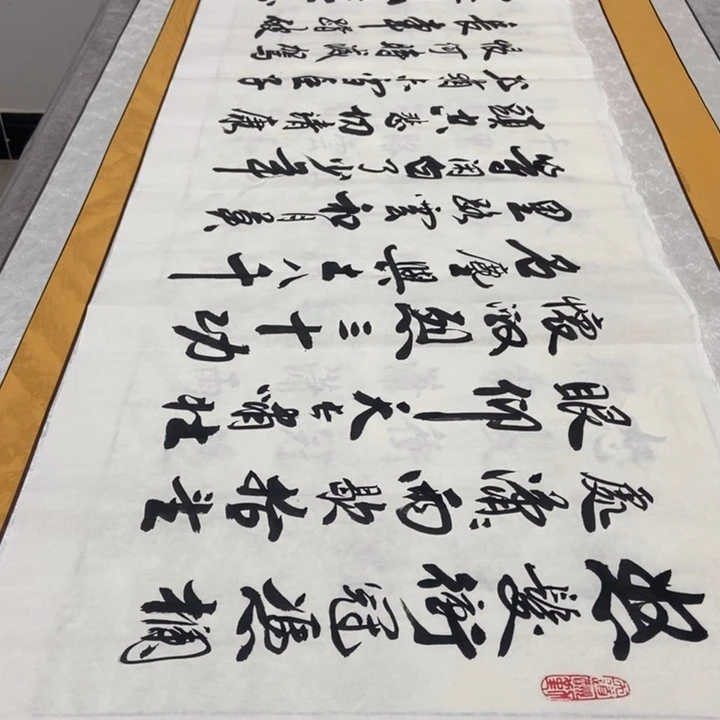 怒髮衝冠憑欄
處瀟〻雨歇抬望
眼仰天長嘯壯
懷激烈三十功
名塵與土八千
里路雲和月莫
等閒白了少年
頭空悲切靖康
恥猶未雪臣子
恨何時滅駕
長車踏破